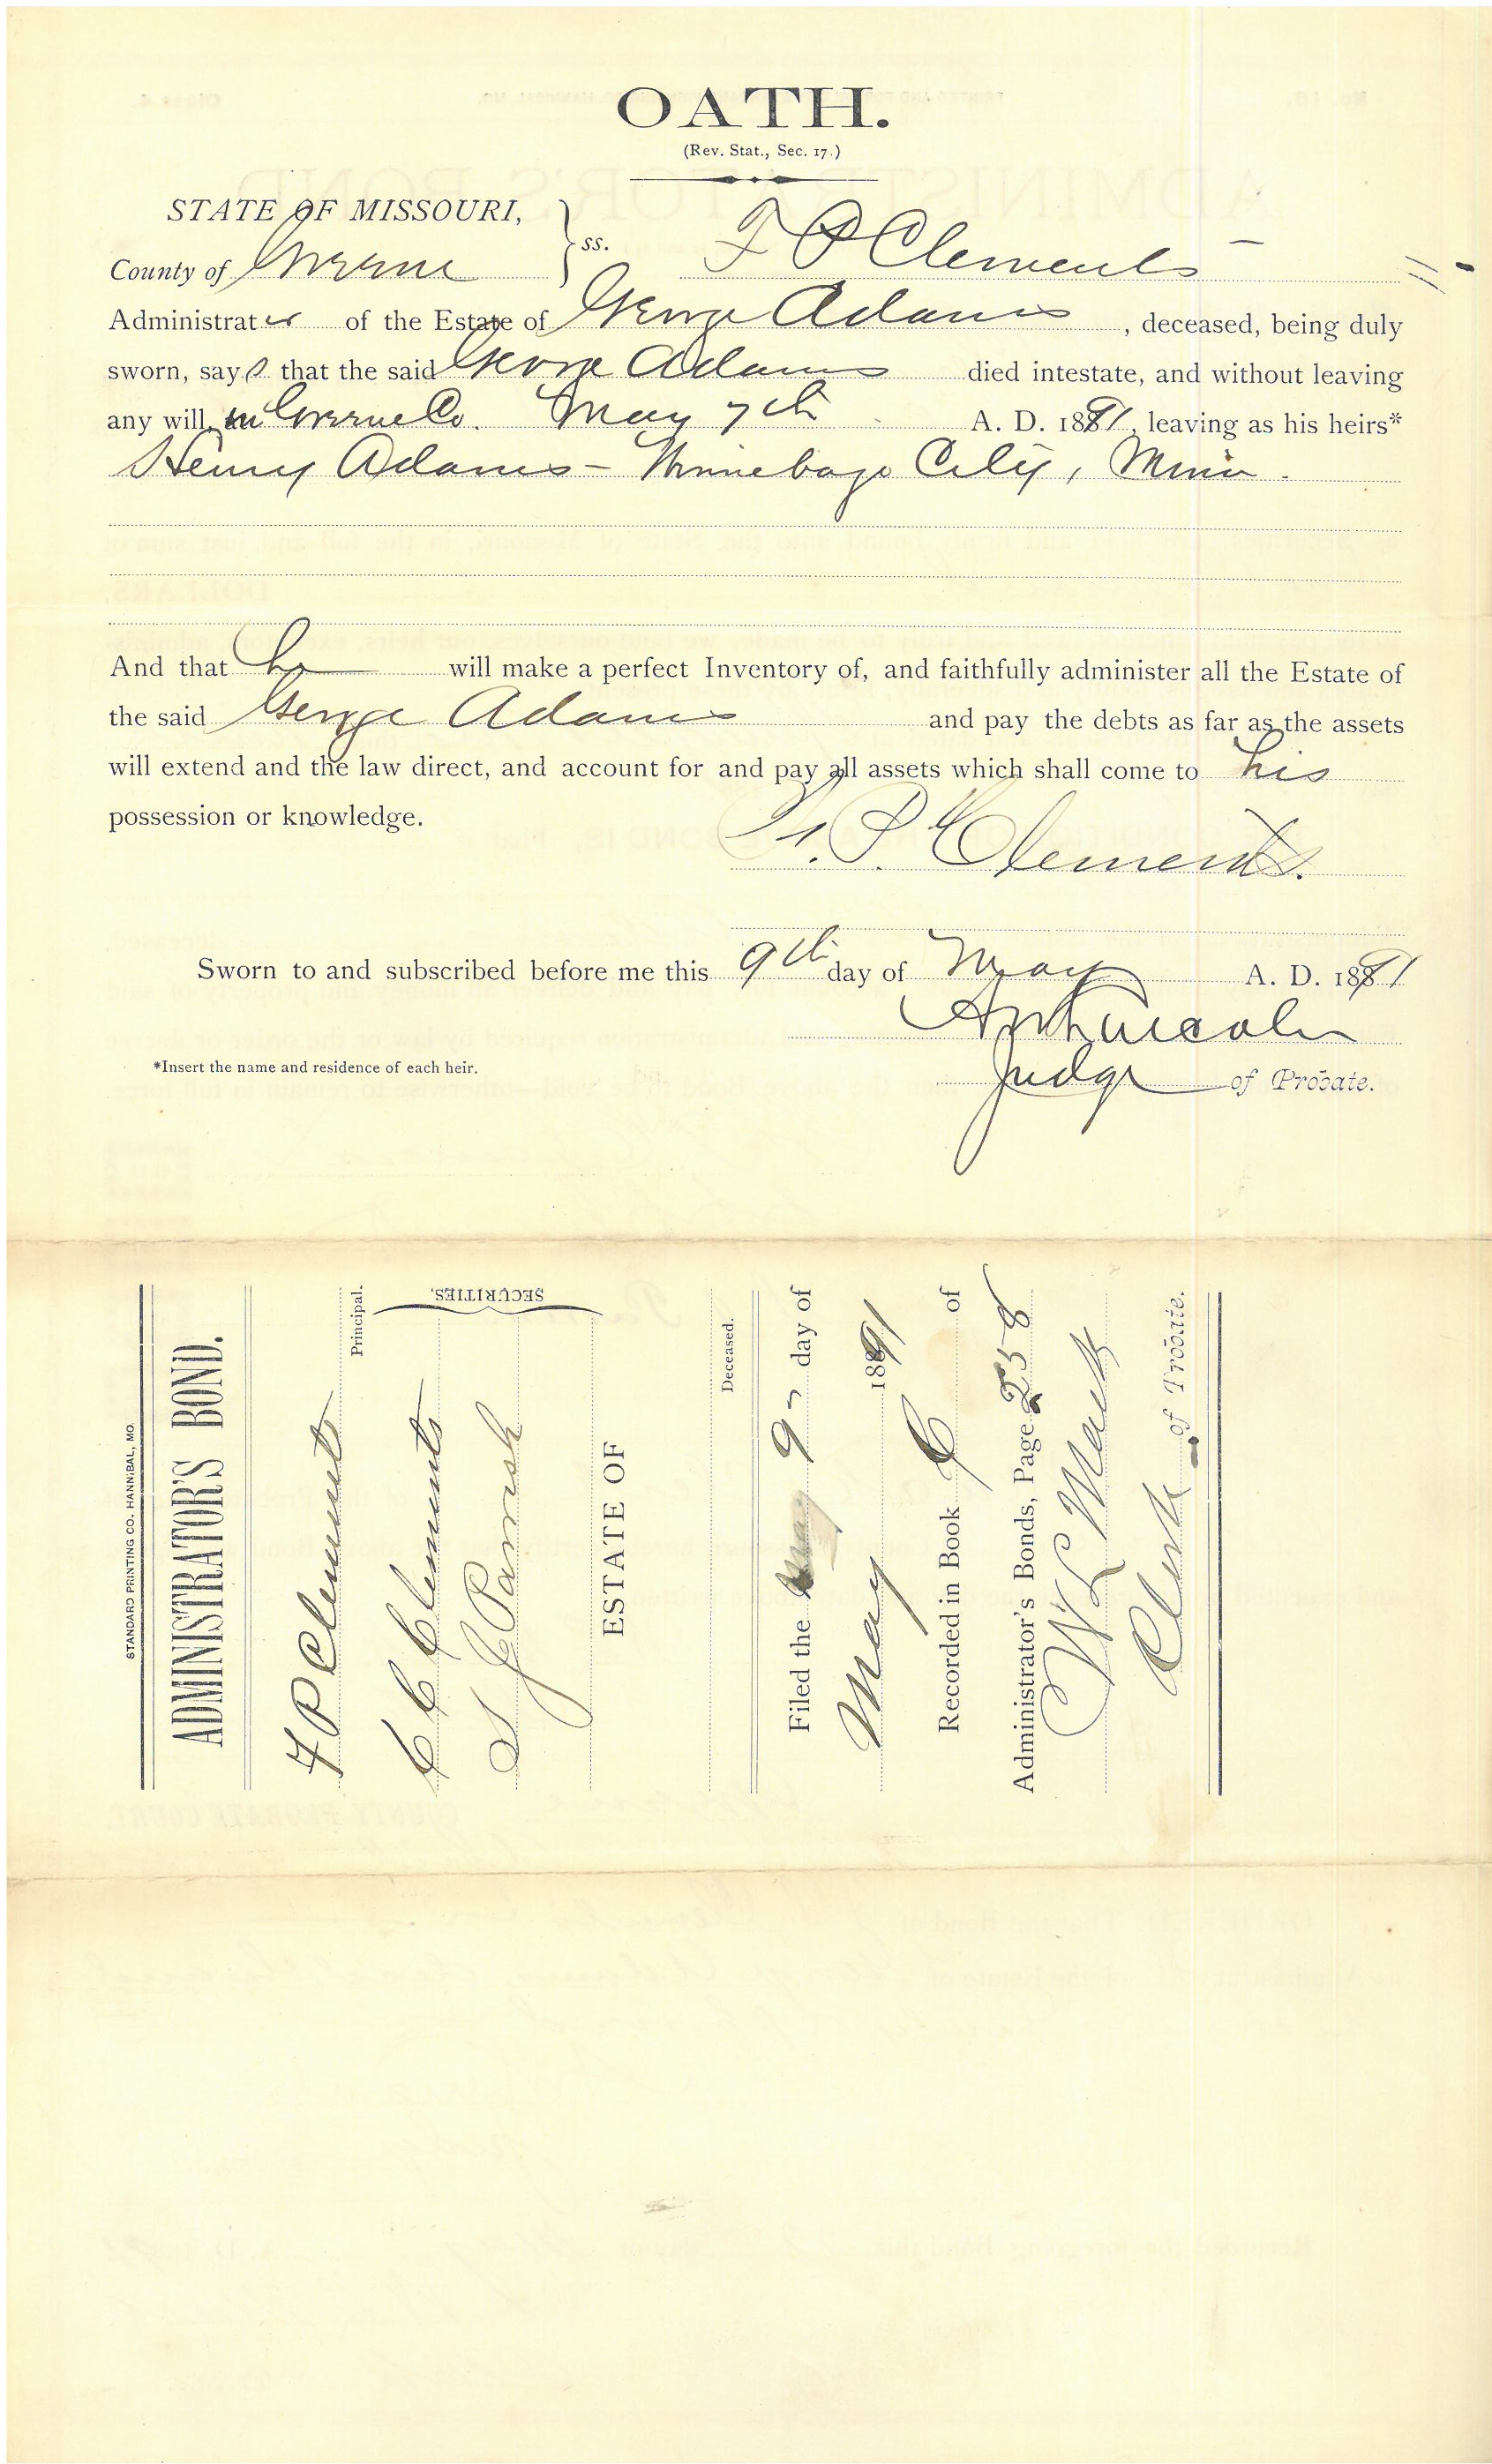 OATH.
(Rev. Stat., Sec. 17.)
STATE OF MISSOURI,
County of Greene } ss. F P Clements
Administrator of the Estate of George Adams, deceased, being duly
sworn, says that the said George Adams died intestate, and without leaving
any will, in Greene Co. May 7th A. D. 1891, leaving as his heirs*
Henry Adams - Winnebago City, Minn.
And that he will make a perfect Inventory of, and faithfully administer all the Estate of
the said George Adams and pay the debts as far as the assets
will extend and the law direct, and account for and pay all assets which shall come to his
possession or knowledge.
F. P. Clements.
Sworn to and subscribed before me this 9th day of May A. D. 1891
Lincoln
*Insert the name and residence of each heir.
Judge of Probate.
STANDARD PRINTING CO. HANNIBAL, MO.
ADMINISTRATOR'S BOND.
F P Clements
Principal.
C C Clements
S J Parrish
SECURITIES.
ESTATE OF
Deceased.
Filed the 9 day of
May 1891
Recorded in Book C of
Administrator's Bonds, Page 258
W L
Clerk of Probate.